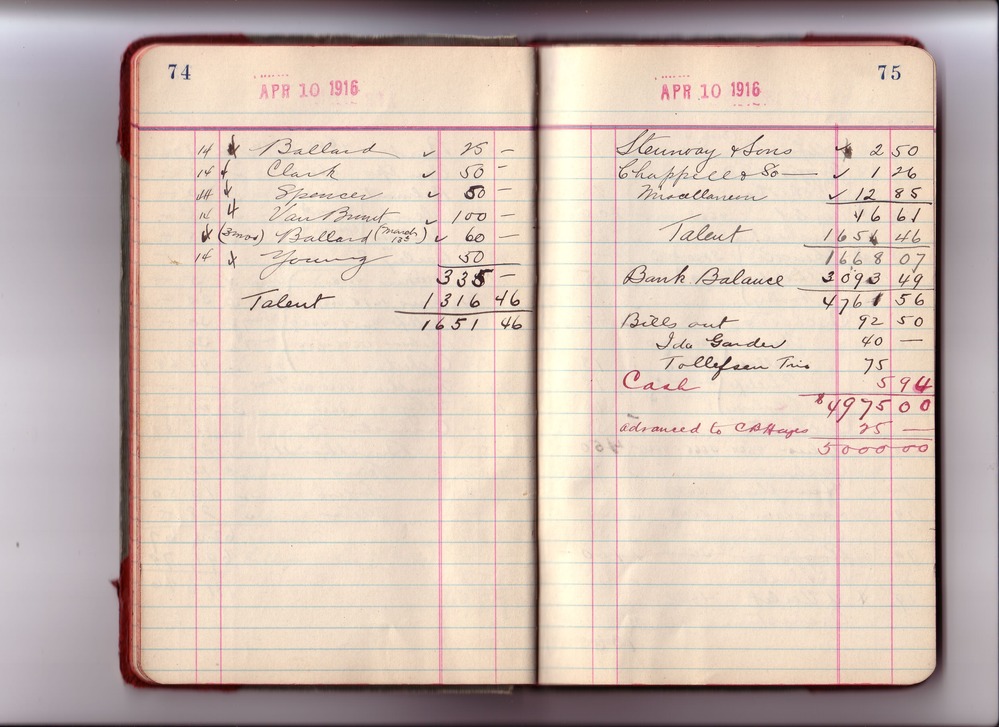 74
APR 10 1916
14 Ballard ✓ 25 —
14 Clark ✓ 50 —
14 Spencer ✓ 50 —
14 Van Brunt ✓ 100 —
(3 mos) Ballard (March 13th) ✓ 60 —
14 x Young 50
335 —
Talent 1316 46
1651 46
75
APR 10 1916
Steinway & Sons 2 50
Chappell & Co — ✓ 1 26
Miscellaneous ✓ 12 85
46 61
Talent 1651 46
1668 07
Bank Balance 3093 49
4761 56
Bills out 92 50
Ida Gardner 40 —
Tollefsen Trio 75
Cash 5 94
$4975 00
advanced to CB Hayes 25 —
5000 00